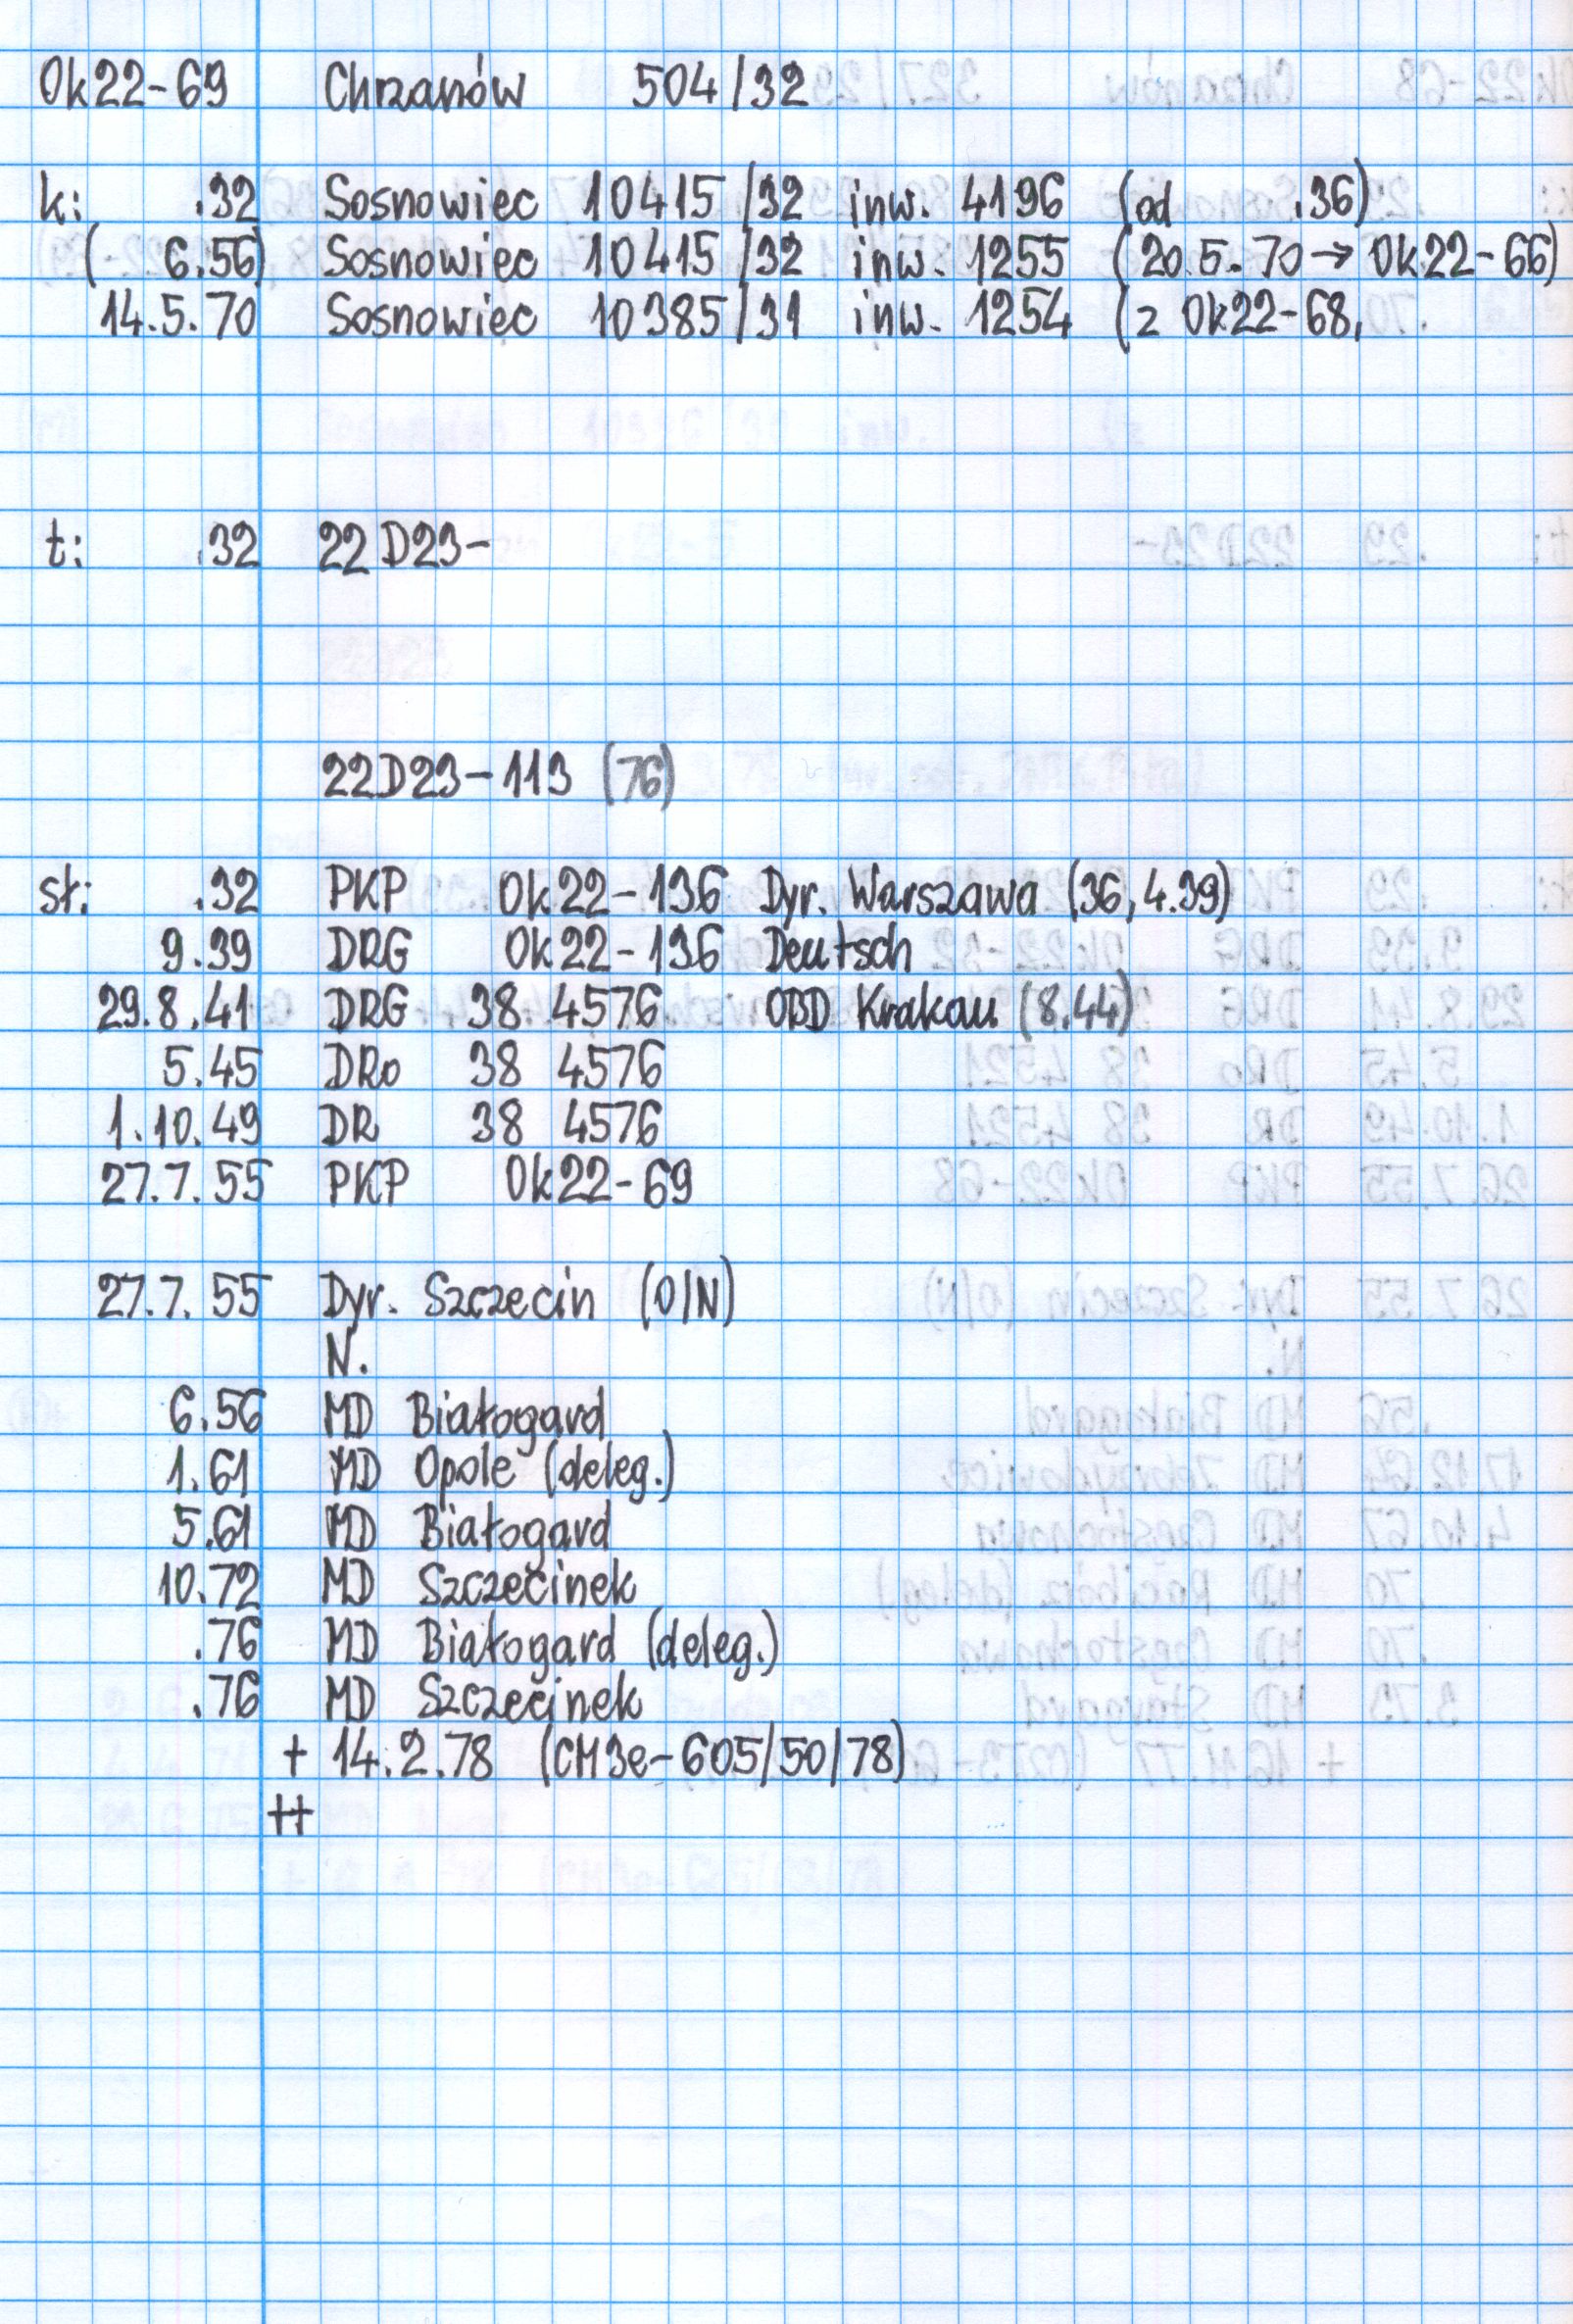 Ok22-69 Chrzanów 504/32
k: .32 Sosnowiec 10415/32 inw. 4196 (od .36)
( 6.56) Sosnowiec 10415/32 inw. 1255 (20.5.70→Ok22-66)
14.5.70 Sosnowiec 10385/31 inw. 1254 (z Ok22-68,
t: .32 22D23-
22D23-113 (76)
sł: .32 PKP Ok22-136 Dyr. Warszawa (36, 4.39)
9.39 DRG Ok22-136 Deutsch
29.8.41 DRG 38 4576 OBD Krakau (8.44)
5.45 DRo 38 4576
1.10.49 DR 38 4576
27.7.55 PKP Ok22-69
27.7.55 Dyr. Szczecin (O/N)
N.
6.56 MD Białogard
1.61 MD Opole (deleg.)
5.61 MD Białogard
10.72 MD Szczecinek
.76 MD Białogard (deleg.)
.76 MD Szczecinek
+ 14.2.78 (CM3e-605/50/78)
++